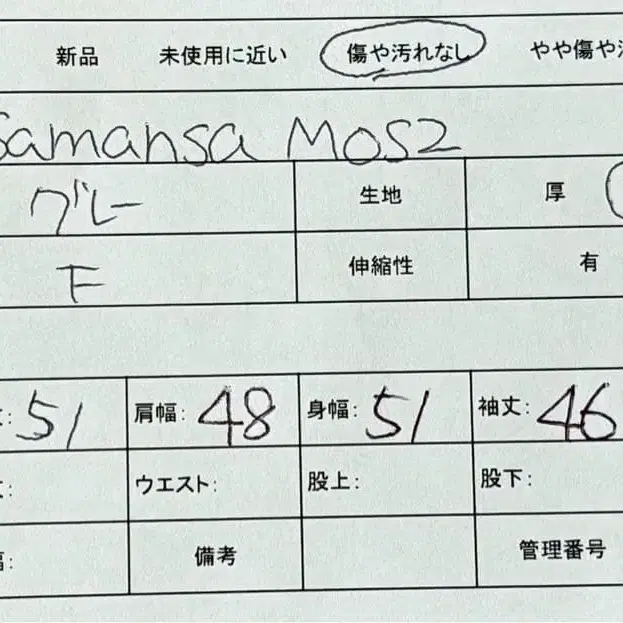 新品 未使用に近い 傷や汚れなし やや傷や
Samansa MOS2
グレー 生地 厚
F 伸縮性 有
: 51 肩幅: 48 身幅: 51 袖丈: 46
: ウエスト: 股上: 股下:
: 備考 管理番号